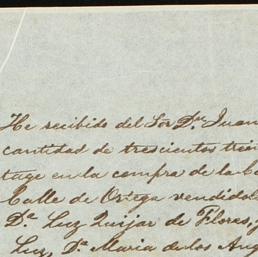 He recibido del Sor Dn Juan
cantidad de trescientos trein
tage en la compra de la Ca
Calle de Ortega vendidola
Da Luz Quijar de Flores, y
Luz, Da Maria de los Ang